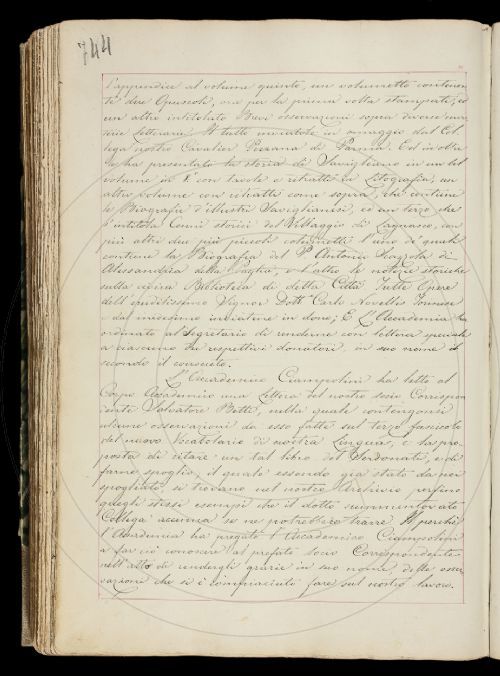 744
l'appendice al volume quinto, un volumetto contenen-
te due Opuscoli, ora per la prima volta stampati, ed
un altro intitolato Brevi osservazioni sopra diverse ma-
terie letterarie. Il tutto inviatoci in omaggio dal Col-
lega nostro Cavalier Pezzana di Parma. Ed in oltre
ha presentato la storia di Savigliano in un bel
volume in 8º con tavole e ritratti in Litografia, un
altro volume con ritratti come sopra, che contiene
le Biografie d'illustri Saviglianesi, ed un terzo che
s'intitola Cenni storici del Villaggio di Lagnasco, con
più altri due più piccoli volumetti l'uno de' quali
contiene la Biografia del Pº Antonio di
Alessandria della Paglia, e l'altro le notizie storiche
sulla Biblioteca di detta Città. Tutte Opere
dell'eruditissimo Signor Dott. Carlo Novellis Torinese
e dal medesimo inviateci in dono; E l'Accademia ha
ordinato al Segretario di renderne con lettera speciale
a ciascuno de' respettivi donatori, in suo nome
secondo il consueto.
L'Accademico Ciampolini ha letto al
Corpo Accademico una Lettera del nostro socio Corrispon-
dente Salvatore Betti, nella quale contengonsi
alcune osservazioni da esso fatte sul terzo fascicolo
del nuovo Vocabolario di nostra Lingua, e la pro-
posta di citare un tal libro del Sardonati, e di
farne spoglio, il quale essendo già stato da noi
spogliato, si trovano nel nostro Archivio perfino
quegli stessi esempi che il dotto rammentovato
Collega accenna se ne potrebbero trarre. Il perchè
l'Accademia ha pregato l'Accademico Ciampolini
a far ciò conoscere al prefato socio Corrispondente
nell'atto di rendergli grazie in suo nome delle osser-
vazioni che si è compiaciuto fare sul nostro lavoro.